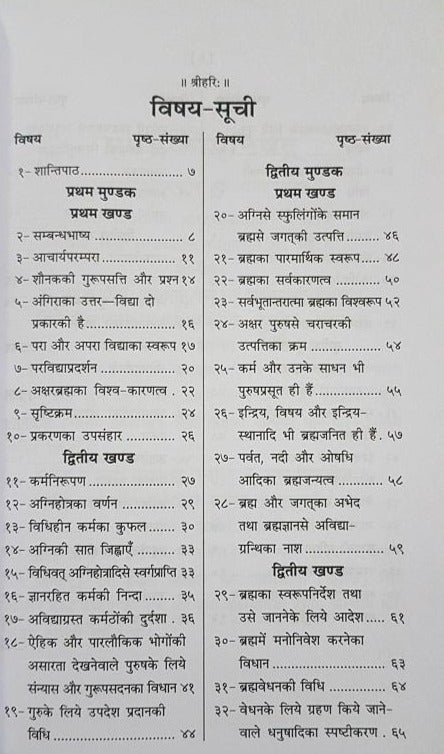 ॥ श्रीहरि: ॥
विषय-सूची
विषय पृष्ठ-संख्या
१- शान्तिपाठ........................ ७
प्रथम मुण्डक
प्रथम खण्ड
२- सम्बन्धभाष्य..................... ८
३- आचार्यपरम्परा.................. ११
४- शौनककी गुरूपसत्ति और प्रश्न १४
५- अंगिराका उत्तर—विद्या दो
प्रकारकी है...................... १६
६- परा और अपरा विद्याका स्वरूप १७
७- परविद्याप्रदर्शन................ २०
८- अक्षरब्रह्मका विश्व-कारणत्व . २२
९- सृष्टिक्रम........................ २४
१०- प्रकरणका उपसंहार ........... २६
द्वितीय खण्ड
११- कर्मनिरूपण .................... २७
१२- अग्निहोत्रका वर्णन ............ २९
१३- विधिहीन कर्मका कुफल ...... ३०
१४- अग्निकी सात जिह्वाएँ ......... ३३
१५- विधिवत् अग्निहोत्रादिसे स्वर्गप्राप्ति ३३
१६- ज्ञानरहित कर्मकी निन्दा ..... ३५
१७- अविद्याग्रस्त कर्मठोंकी दुर्दशा . ३६
१८- ऐहिक और पारलौकिक भोगोंकी
असारता देखनेवाले पुरुषके लिये
संन्यास और गुरूपसदनका विधान ४१
१९- गुरुके लिये उपदेश प्रदानकी
विधि ............................. ४४
विषय पृष्ठ-संख्या
द्वितीय मुण्डक
प्रथम खण्ड
२०- अग्निसे स्फुलिंगोंके समान
ब्रह्मसे जगत्‌की उत्पत्ति ........ ४६
२१- ब्रह्मका पारमार्थिक स्वरूप .... ४८
२२- ब्रह्मका सर्वकारणत्व .......... ५०
२३- सर्वभूतान्तरात्मा ब्रह्मका विश्वरूप ५२
२४- अक्षर पुरुषसे चराचरकी
उत्पत्तिका क्रम ................. ५४
२५- कर्म और उनके साधन भी
पुरुषप्रसूत ही हैं ............... ५५
२६- इन्द्रिय, विषय और इन्द्रिय-
स्थानादि भी ब्रह्मजनित ही हैं . ५७
२७- पर्वत, नदी और ओषधि
आदिका ब्रह्मजन्यत्व .......... ५८
२८- ब्रह्म और जगत्‌का अभेद
तथा ब्रह्मज्ञानसे अविद्या-
ग्रन्थिका नाश................... ५९
द्वितीय खण्ड
२९- ब्रह्मका स्वरूपनिर्देश तथा
उसे जाननेके लिये आदेश .... ६१
३०- ब्रह्ममें मनोनिवेश करनेका
विधान ........................... ६३
३१- ब्रह्मवेधनकी विधि ............. ६४
३२- वेधनके लिये ग्रहण किये जाने-
वाले धनुषादिका स्पष्टीकरण . ६५